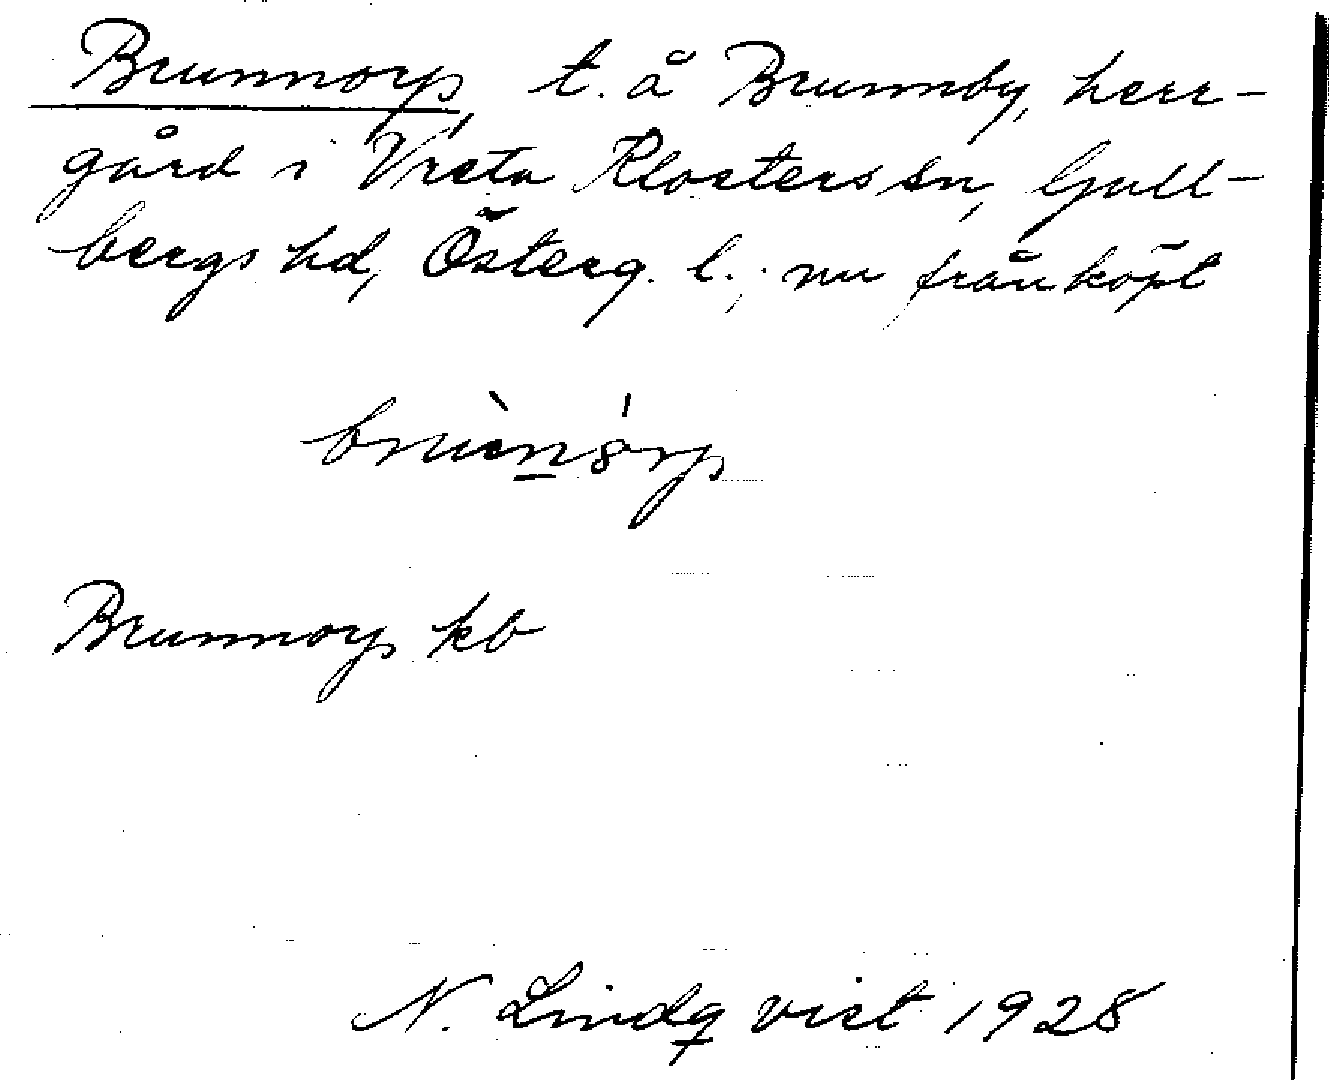 Brunnorp, t. å Brunneby, herr-
gård i Vreta Klosters sn, Gull-
bergs hd, Österg. l.; nu frånköpt
Brunnorp kb
N. Lindqvist 1928